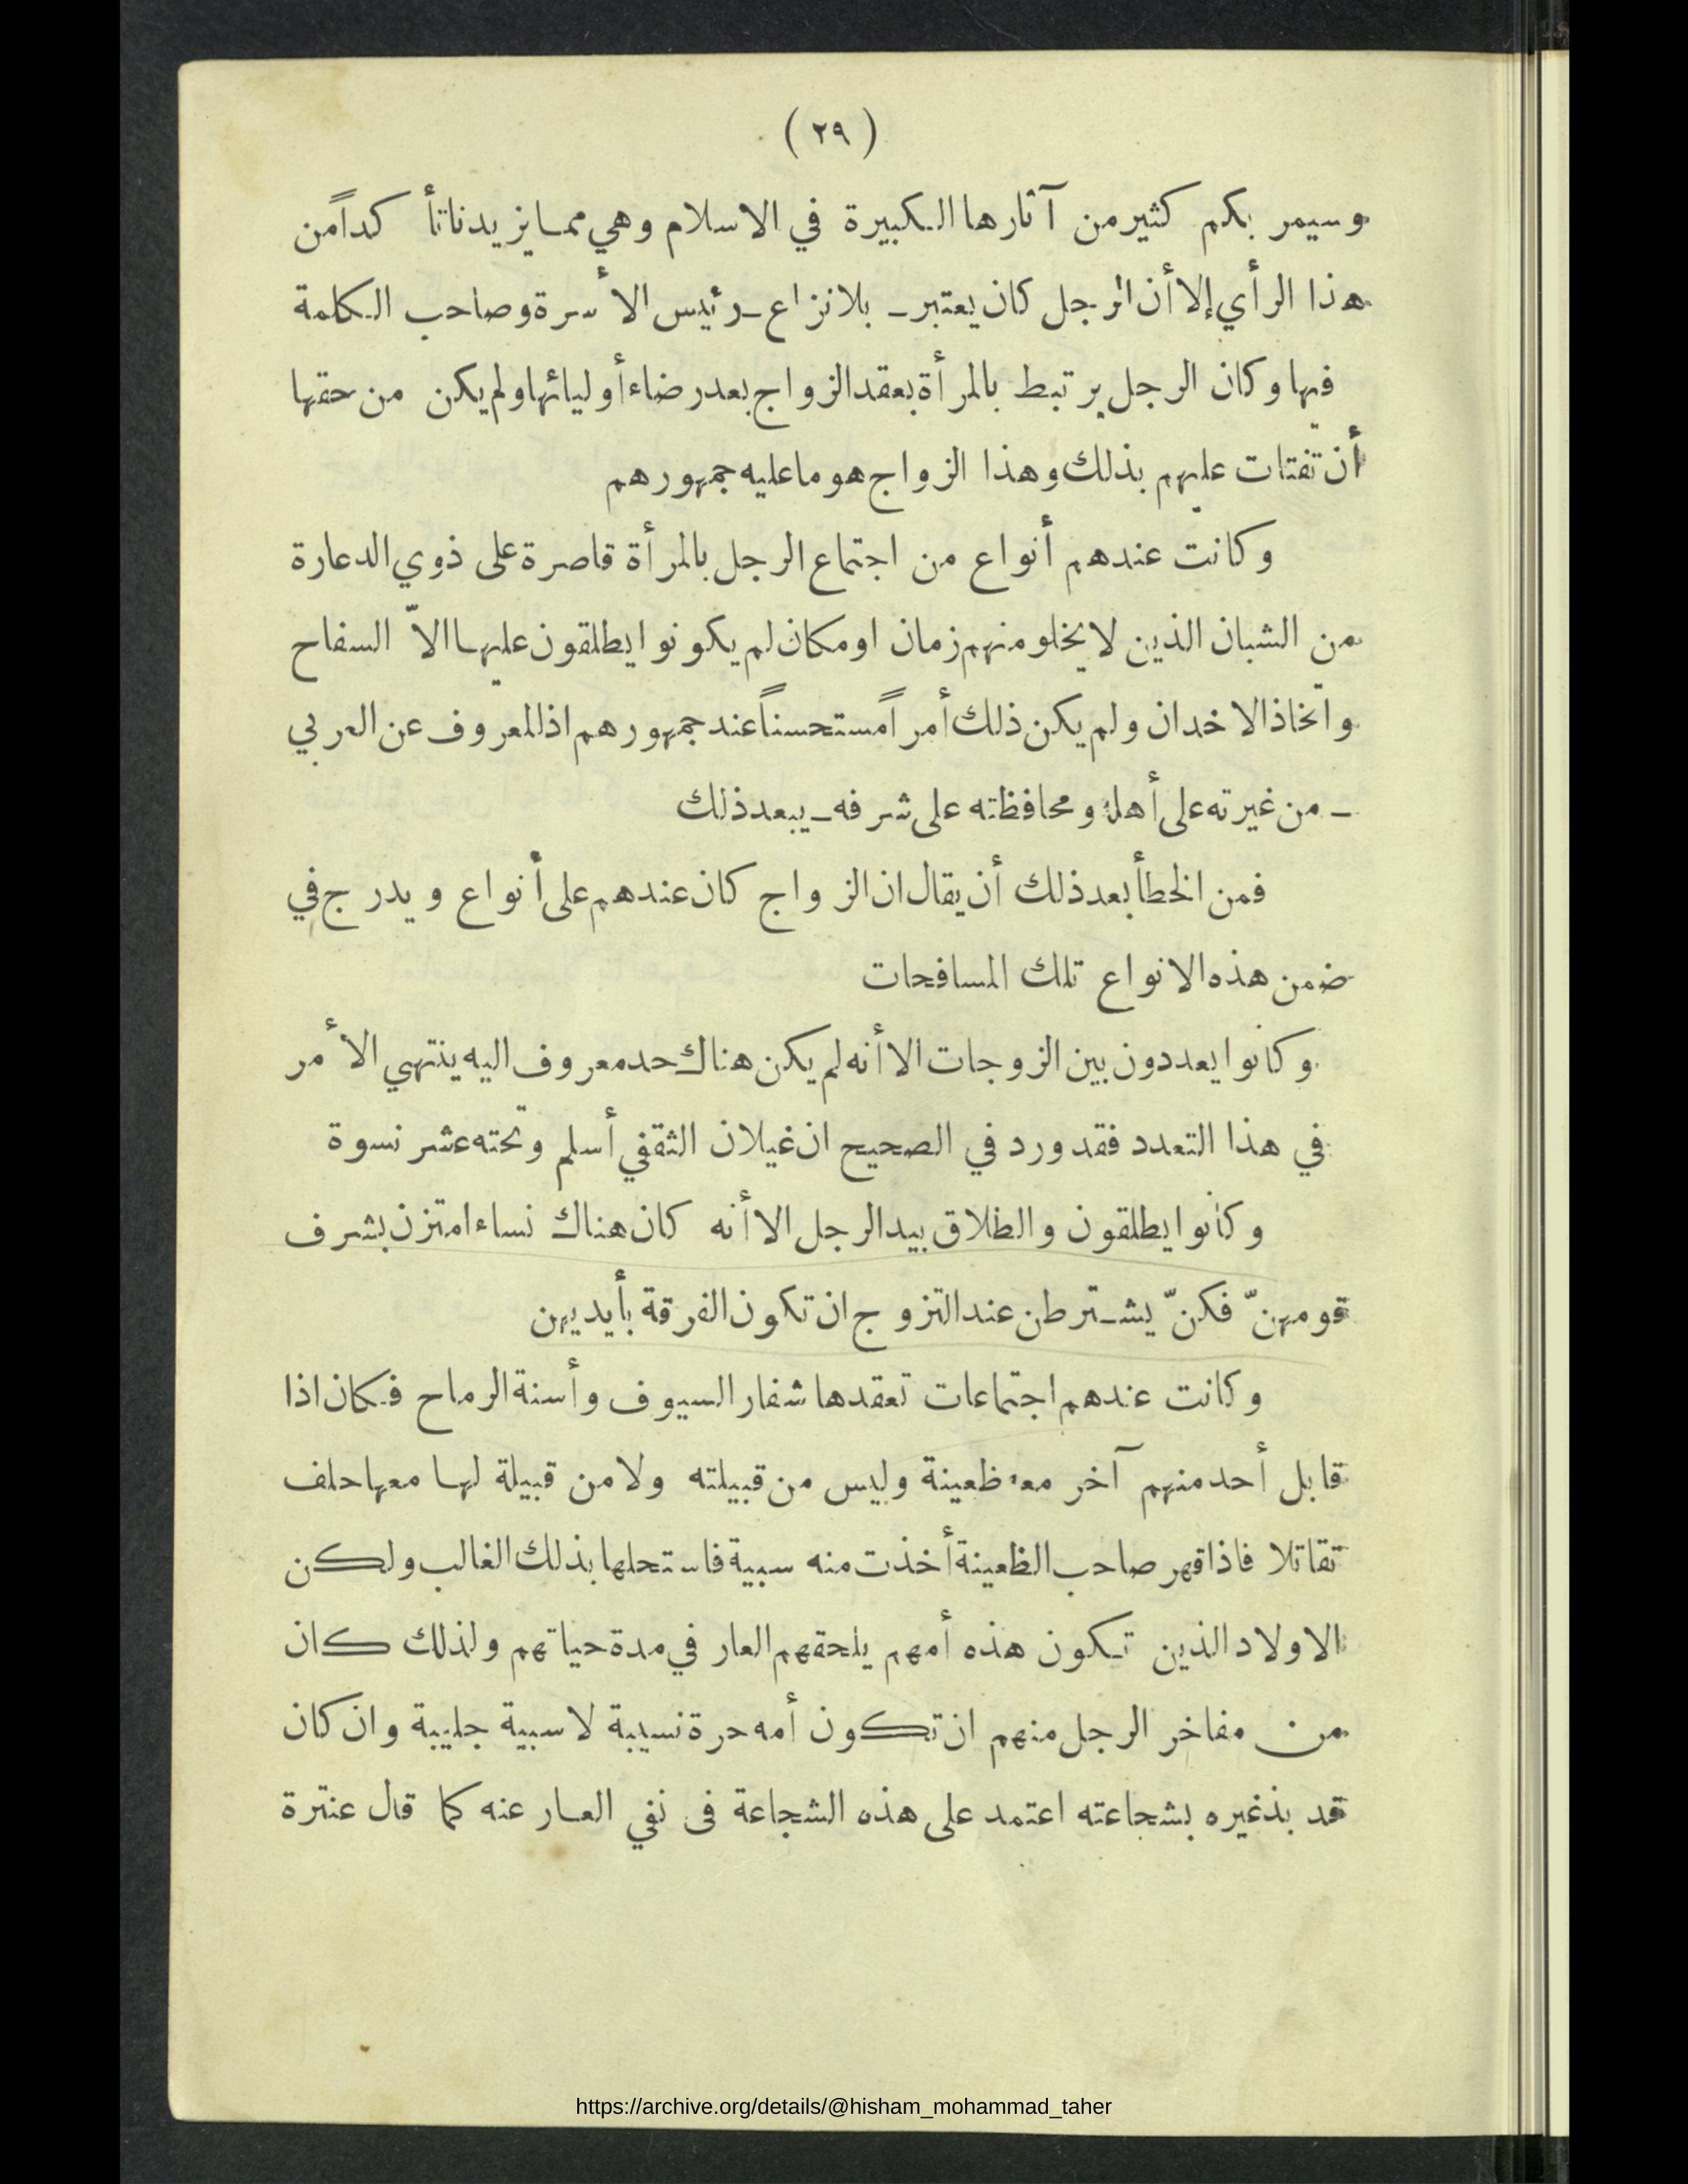 ( ٢٩ )
وسيمر بكم كثير من آثارها الكبيرة في الاسلام وهي مما يزيدنا تأكداً من
هذا الرأي إلا أن الرجل كان يعتبر ـ بلا نزاع ـ رئيس الأسرة وصاحب الكلمة
فيها وكان الرجل يرتبط بالمرأة بعقد الزواج بعد رضاء أوليائها ولم يكن من حقها
أن تفتات عليهم بذلك وهذا الزواج هو ما عليه جمهورهم
وكانت عندهم أنواع من اجتماع الرجل بالمرأة قاصرة على ذوي الدعارة
من الشبان الذين لا يخلو منهم زمان او مكان لم يكونوا يطلقون عليها الاّ السفاح
واتخاذ الاخدان ولم يكن ذلك أمراً مستحسناً عند جمهورهم اذ المعروف عن العربي
ـ من غيرته على أهله ومحافظته على شرفه ـ يبعد ذلك
فمن الخطأ بعد ذلك أن يقال ان الزواج كان عندهم على أنواع ويدرج في
ضمن هذه الانواع تلك المسافحات
وكانوا يعددون بين الزوجات الا أنه لم يكن هناك حد معروف اليه ينتهي الأمر
في هذا التعدد فقد ورد في الصحيح ان غيلان الثقفي أسلم وتحته عشر نسوة
وكانوا يطلقون والطلاق بيد الرجل الا أنه كان هناك نساء امتزن بشرف
قومهنّ فكنّ يشترطن عند التزوج ان تكون الفرقة بأيديهن
وكانت عندهم اجتماعات تعقدها شفار السيوف وأسنة الرماح فكان اذا
قابل أحد منهم آخر معه ظعينة وليس من قبيلته ولا من قبيلة لها معها حلف
تقاتلا فاذا قهر صاحب الظعينة أخذت منه سبية فاستحلها بذلك الغالب ولكن
الاولاد الذين تكون هذه أمهم يلحقهم العار في مدة حياتهم ولذلك كان
من مفاخر الرجل منهم ان تكون أمه حرة نسيبة لا سبية جليبة وان كان
قد بذ غيره بشجاعته اعتمد على هذه الشجاعة فى نفي العار عنه كما قال عنترة
https://archive.org/details/@hisham_mohammad_taher